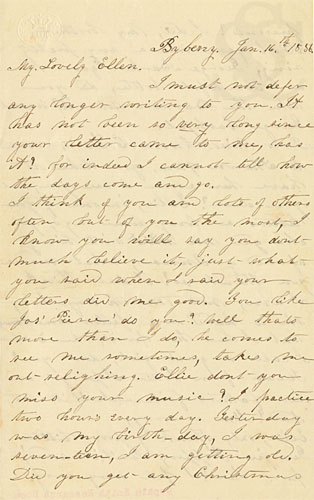 Byberry. Jan. 16th 1856
My Lovely Ellen.
I must not defer
any longer writing to you. It
has not been so very long since
your letter came to me, has
it? for indeed I cannot tell how
the days come and go.
I think of you and lots of others
often but of you the most, I
know you will say you dont
much believe it, just what
you said when I said your
letters did me good. You like
Jos' Pierce' do you? well thats
more than I do, he comes to
see me sometimes, takes me
out sleighing. Ellie dont you
miss your music? I practice
two hours every day. Yesterday
was my birth-day, I was
seventeen, I am getting old.
Did you get any Christmas